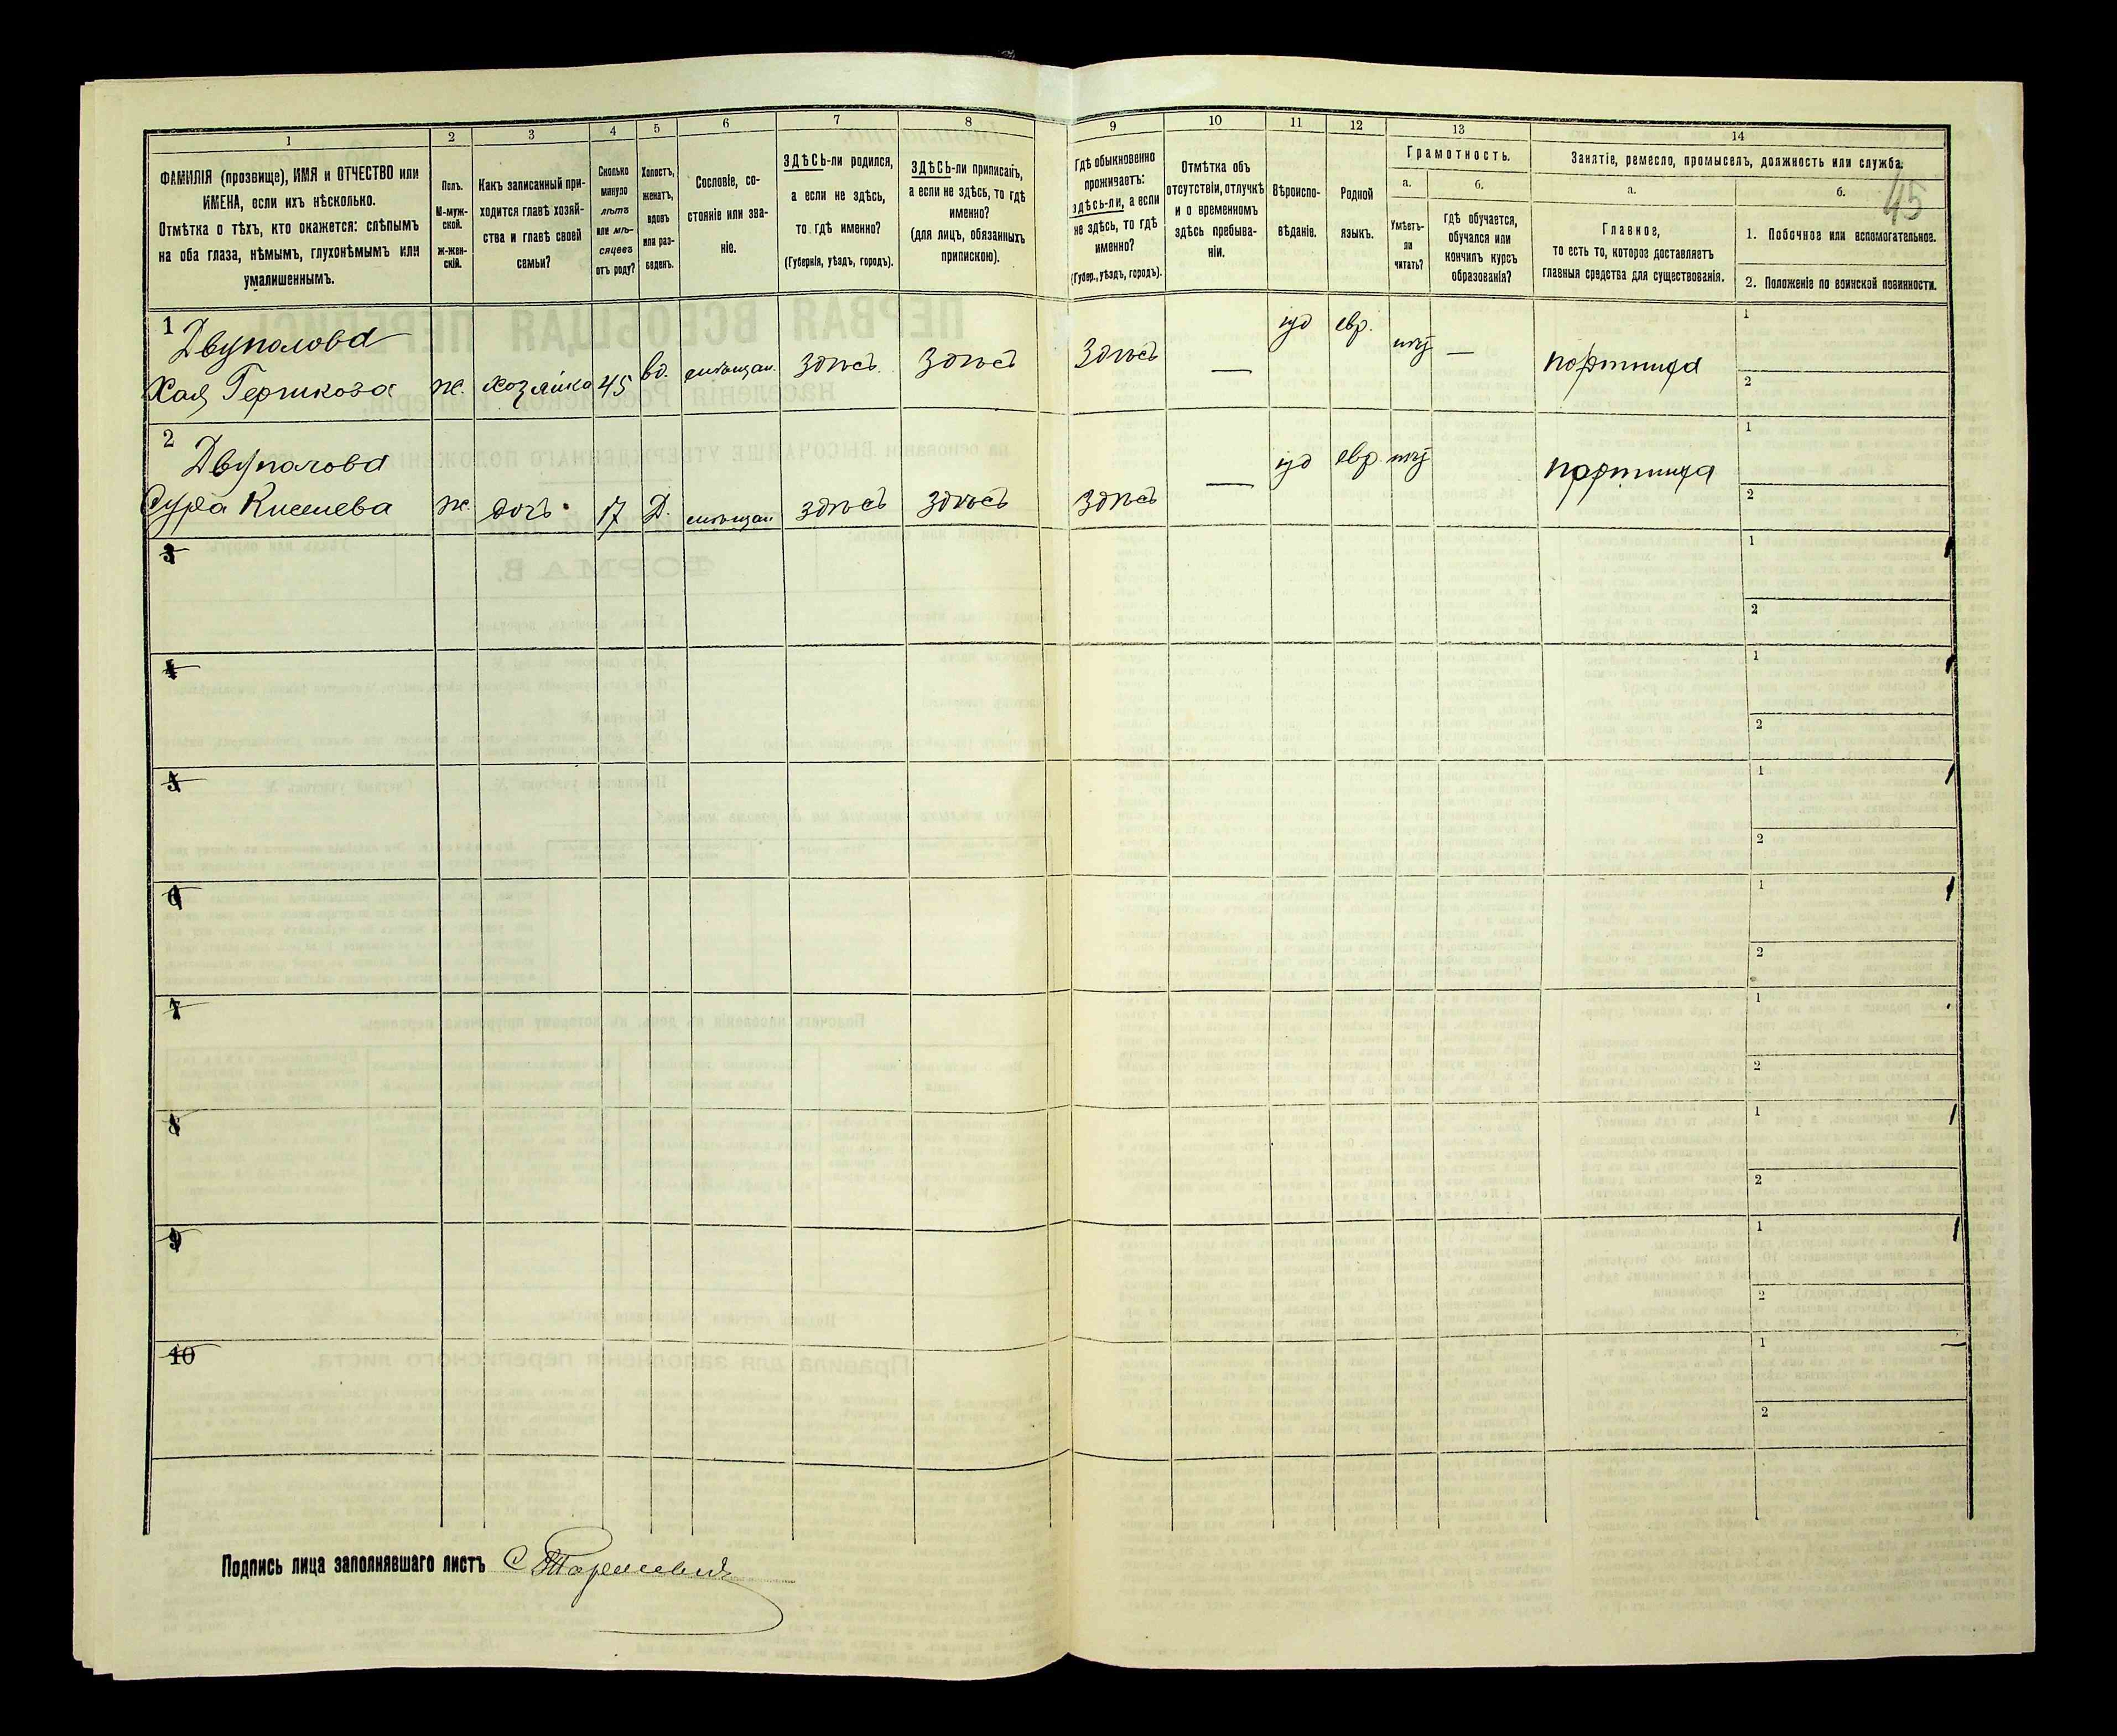 1
2
3
4
5
6
7
8
ФАМИЛІЯ (прозвище), ИМЯ и ОТЧЕСТВО или
ИМЕНА, если ихъ нѣсколько.
Отмѣтка о тѣхъ, кто окажется: слѣпымъ
на оба глаза, нѣмымъ, глухонѣмымъ или
умалишеннымъ.
Полъ.
М-муж-
ской.
Ж-жен-
скій.
Какъ записанный при-
ходится главѣ хозяй-
ства и главѣ своей
семьи?
Сколько
минуло
лѣтъ
или мѣ-
сяцевъ
отъ роду?
Холостъ,
женатъ,
вдовъ
или раз-
веденъ.
Сословіе, со-
стояніе или зва-
ніе.
ЗДѢСЬ-ли родился,
а если не здѣсь,
то гдѣ именно?
(Губернія, уѣздъ, городъ).
ЗДѢСЬ-ли приписанъ,
а если не здѣсь, то гдѣ
именно?
(для лицъ, обязанныхъ
припискою).
9
10
11
12
13
14
Гдѣ обыкновенно
проживаетъ:
здѣсь-ли, а если
не здѣсь, то гдѣ
именно?
(Губер., уѣздъ, городъ).
Отмѣтка объ
отсутствіи, отлучкѣ
и о временномъ
здѣсь пребыва-
ніи.
Вѣроиспо-
вѣданіе.
Родной
языкъ.
Грамотность.
а.
б.
Умѣетъ-
ли
читать?
гдѣ обучается,
обучался или
кончилъ курсъ
образованія?
Занятіе, ремесло, промыселъ, должность или служба.
а.
б.
45
Главное,
то есть то, которое доставляетъ
главныя средства для существованія.
1. Побочное или вспомогательное.
2. Положеніе по воинской повинности.
1
Двуполова
Хая
ж. хозяйка 45 вд. мѣщан. здѣсь здѣсь здѣсь — іуд евр. нѣт — портниха
1
2
2
Двуполова
Сура
ж. дочь 17 Д. мѣщан здѣсь здѣсь здѣсь — іуд евр. нѣт портниха
1
2
3
1
2
4
1
2
5
1
2
6
1
2
7
1
2
8
1
2
9
1
2
10
1
2
Подпись лица заполнявшаго листъ